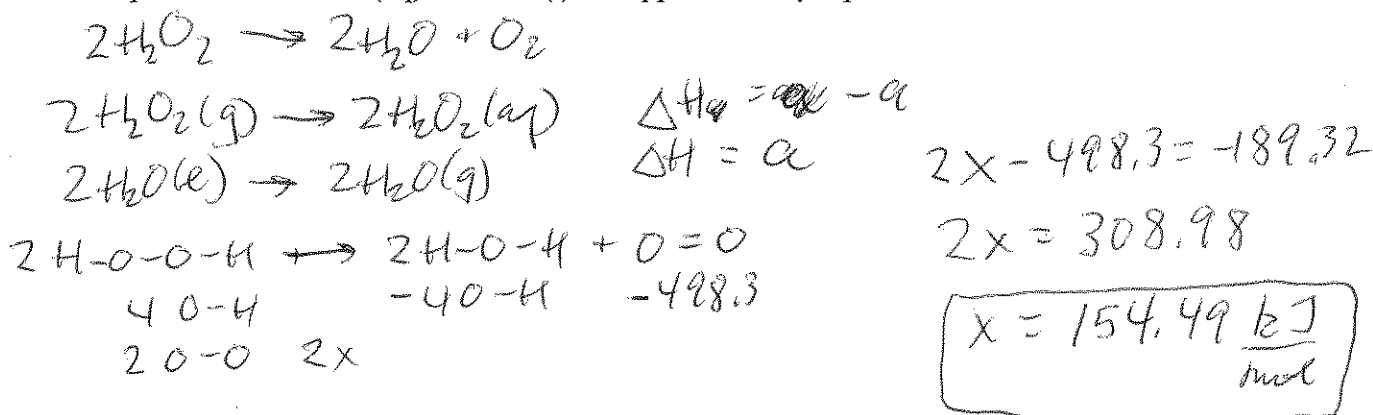 2H₂O₂ → 2H₂O + O₂
2H₂O₂(g) → 2H₂O₂(aq) ΔH = -a
2H₂O(ℓ) → 2H₂O(g) ΔH = a
2 H-O-O-H → 2H-O-H + O=O
4 O-H -4 O-H -498.3
2 O-O 2x
2x - 498.3 = -189.32
2x = 308.98
x = 154.49 kJ/mol